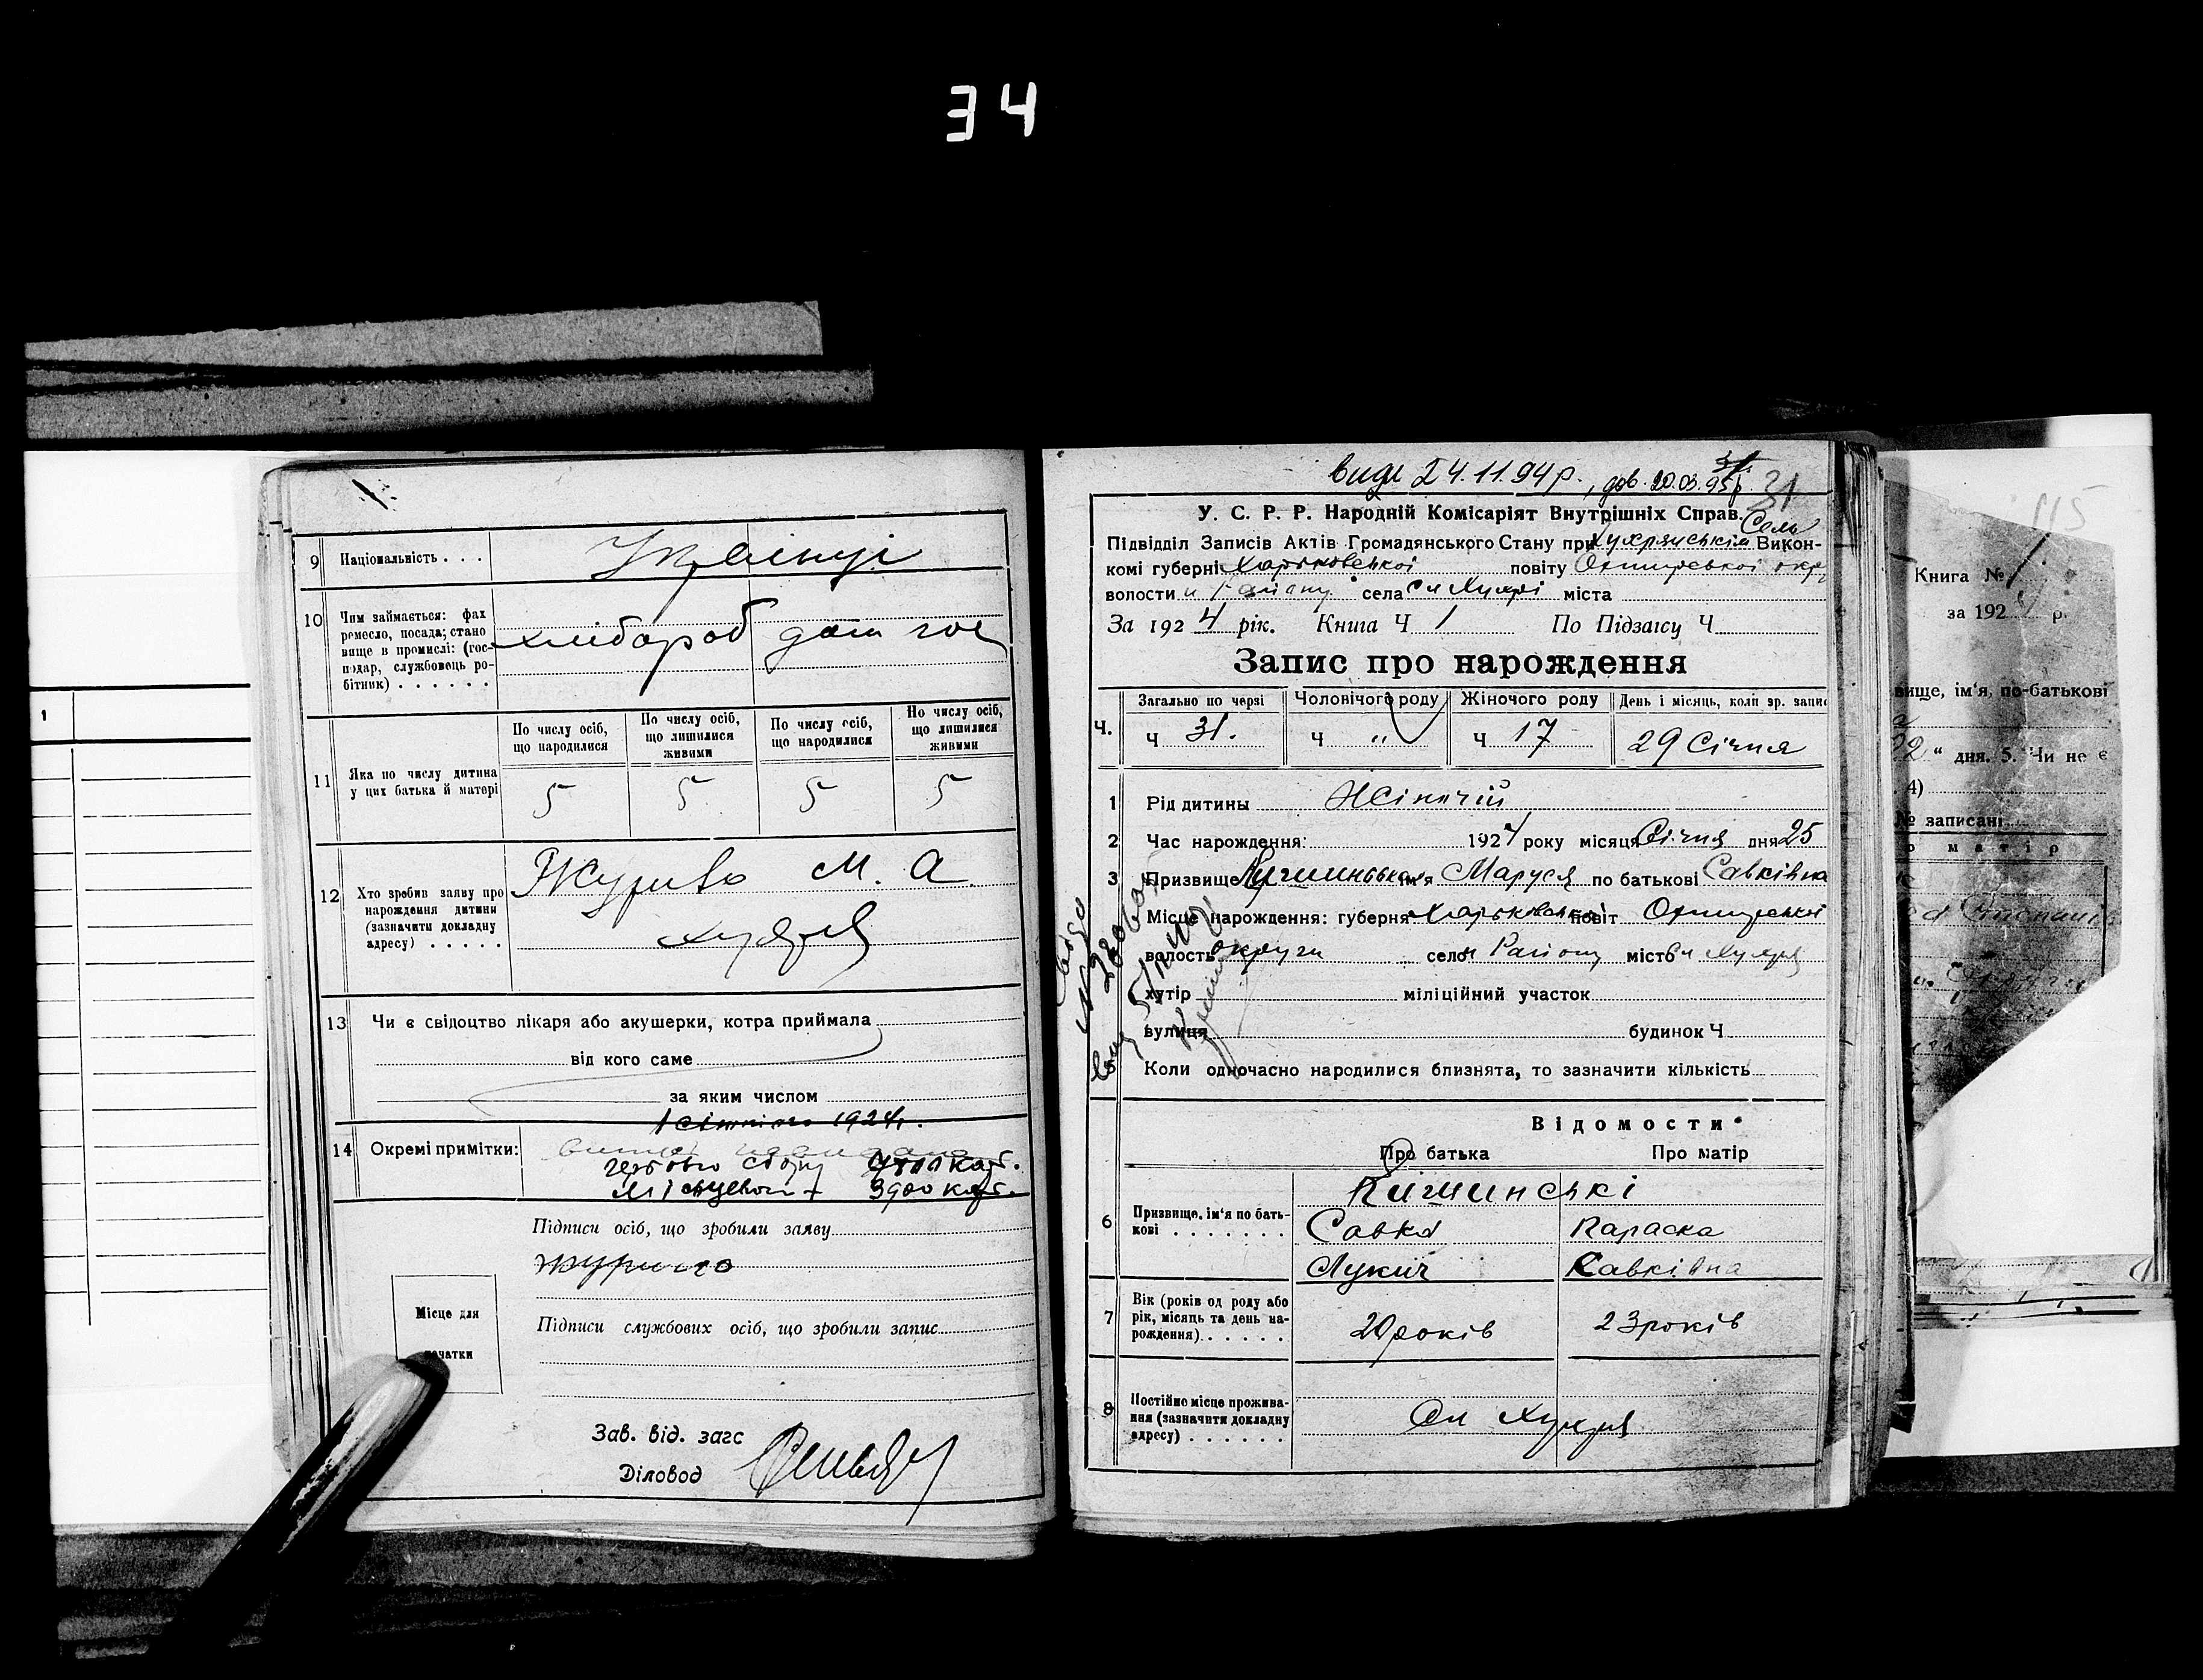 34
1
9 Національність . . . Українці
10 Чим займається: фах
ремесло, посада; стано
вище в промислі: (гос-
подар, службовець ро-
бітник) . . . . . .
хлібороб дом гос
По числу осіб, що народилися
По числу осіб, що лишилися живими
По числу осіб, що народилися
По числу осіб, що лишилися живими
11 Яка по числу дитина
у цих батька й матері
5 5 5 5
12 Хто зробив заяву про
нарождення дитини
(зазначити докладну
адресу) . . . . .
М. А.
13 Чи є свідоцтво лікаря або акушерки, котра приймала
від кого саме
за яким числом
1924
14 Окремі примітки:
3900 карб.
Підписи осіб, що зробили заяву
Місце для
печатки
Підписи службових осіб, що зробили запис
Зав. від. загс
Діловод
видн 24.11.94р., дов. 20.03.95р. 31
У. С. Р. Р. Народній Комісаріят Внутрішніх Справ.
Сель
Підвідділ Записів Актів Громадянського Стану при Хухрянськім Викон-
комі губерні Харьковської повіту Охтирської окр
волости и Району села сл Хухрі міста
За 1924 рік. Книга Ч 1 По Підзагсу Ч
Запис про нарождення
Ч. Загально по черзі Чоловічого роду Жіночого роду День і місяць, коли зр. запис
Ч 31. Ч " Ч 17 29 Січня
1 Рід дитины Жіночій
2 Час нарождення: 1924 року місяця Січня дня 25
3 Призвище Кишинська ім'я Маруся по батькові Савківна
Місце нарождення: губерня Харьковської повіт Охтирської
волость округи село и Району місто сл Хухря
хутір міліційний участок
вулиця будинок Ч
Коли одночасно народилися близнята, то зазначити кількість
Відомости
Про батька Про матір
Кишинські
6 Призвище, ім'я по бать-
кові . . . . . . .
Савка Параска
Лукич Савківна
7 Вік (років од роду або
рік, місяць та день на-
рождення) . . . . .
20 років 23 років
8 Постійне місце прожива-
ння (зазначити докладну
адресу) . . . . . .
Сл Хухря
115
Книга № 1
за 1924 р.
вище, ім'я, по-батькові
" дня. 5. Чи не є
4)
№ записані
матір